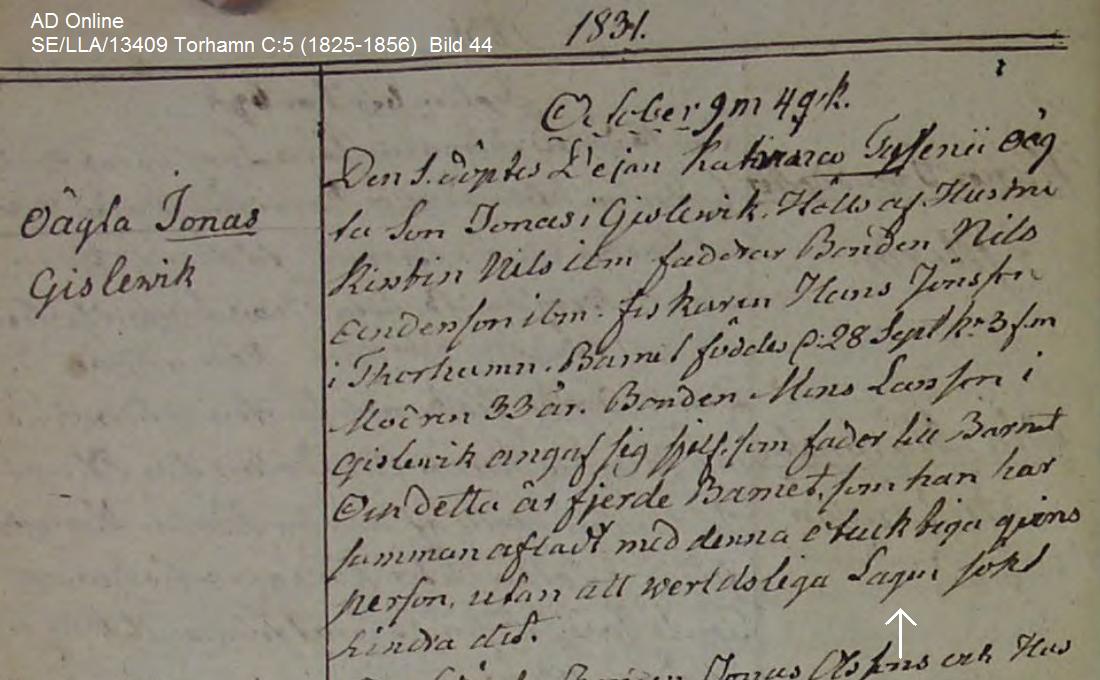 AD Online
SE/LLA/13409 Torhamn C:5 (1825-1856) Bild 44
1831.
October 9m 4grk.
Den 1. döptes Pejan Katrinas Tyssenii oäg
Oägla Jonas
ta Son Jonas i Gislewik. Hölls af Hustru
Gislewik
Kirstin Nils ibm faddrar Bonden Nils
Andersson ibm. fiskaren Hans Jönsson
i Thorhamn. Barnet föddes d: 28 Sept kl 3 f.m
Modren 33 år. Bonden Mons Larsson i
Gislewik angaf sig sjelf som fader till Barnet
Om detta är fjerde Barnet, som han har
samman afladt med denna otuckbiga qvins
person, utan att werldsliga Lagen sökt
hindra det.
Bonden Jonas Olssons och Hus